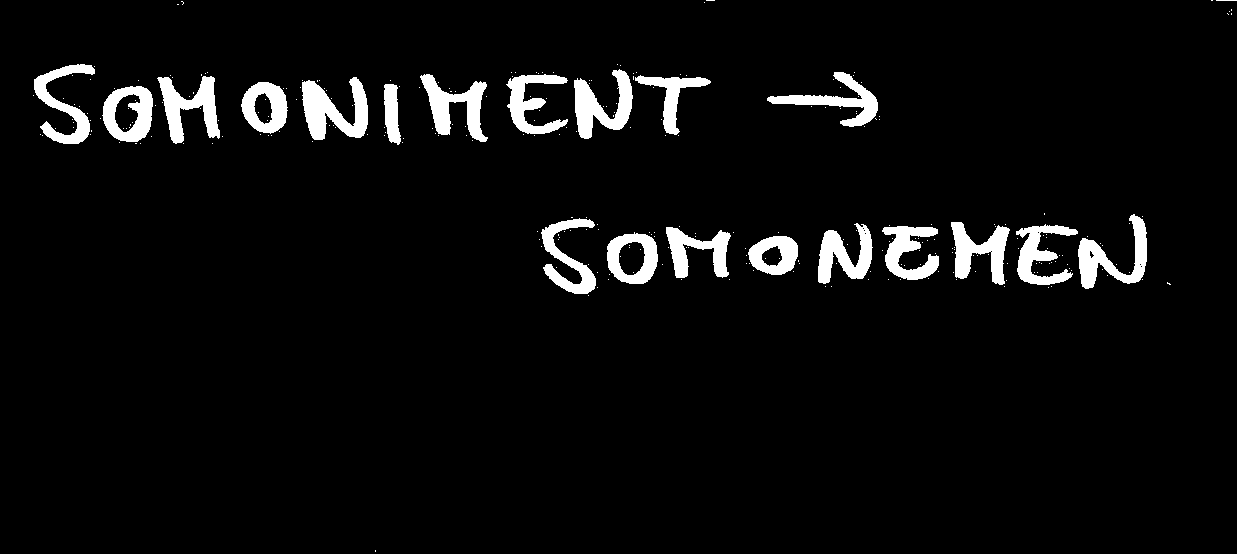 SOMONIMENT →
SOMONEMEN